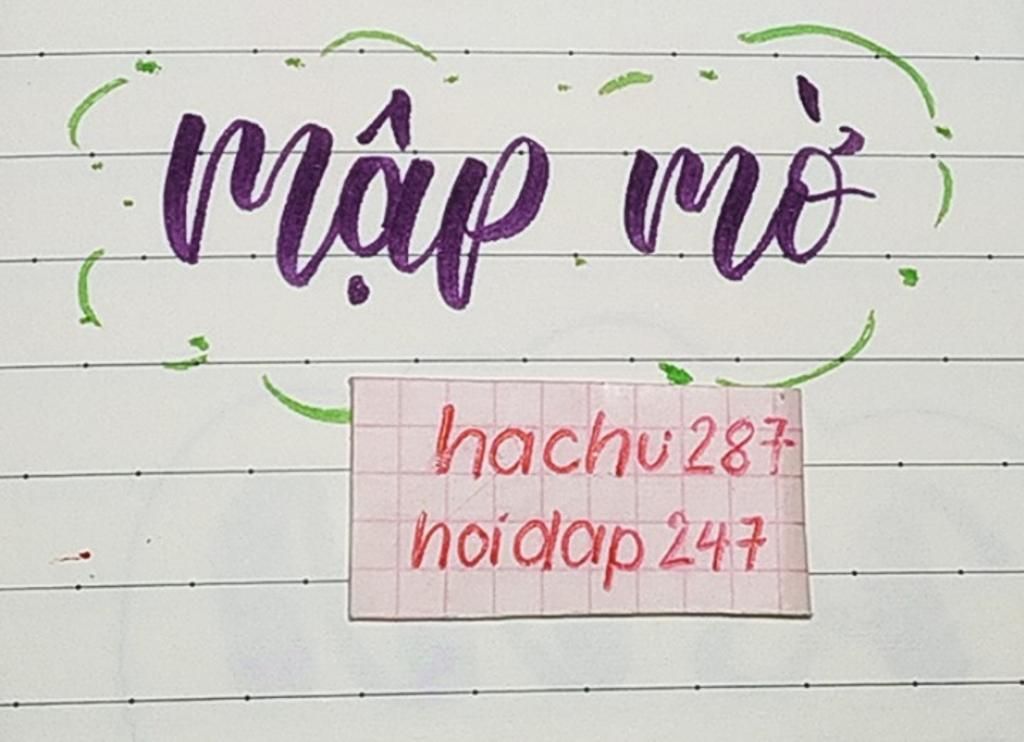 mập mờ
hachu 287
hoidap 247